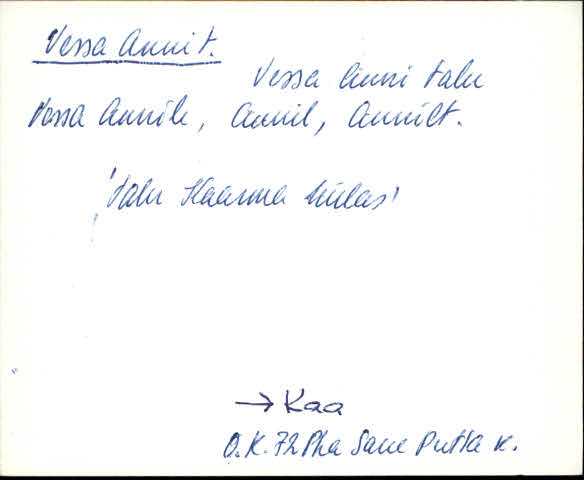 Vessa Annit.
Vessa Anni talu
Vessa Annile, Annil, Annilt.
'talu Kaarma külas'
→ Kaa
O.K. 72 Pha Saue Putla k.